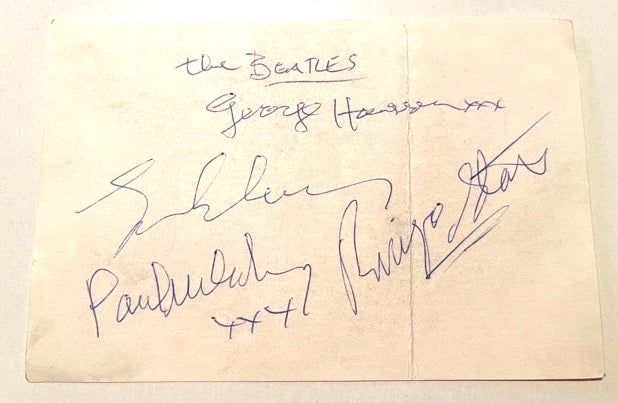 the BEATLES
George Harrison xxx
John Lennon
Paul McCartney
xxx
Ringo Starr